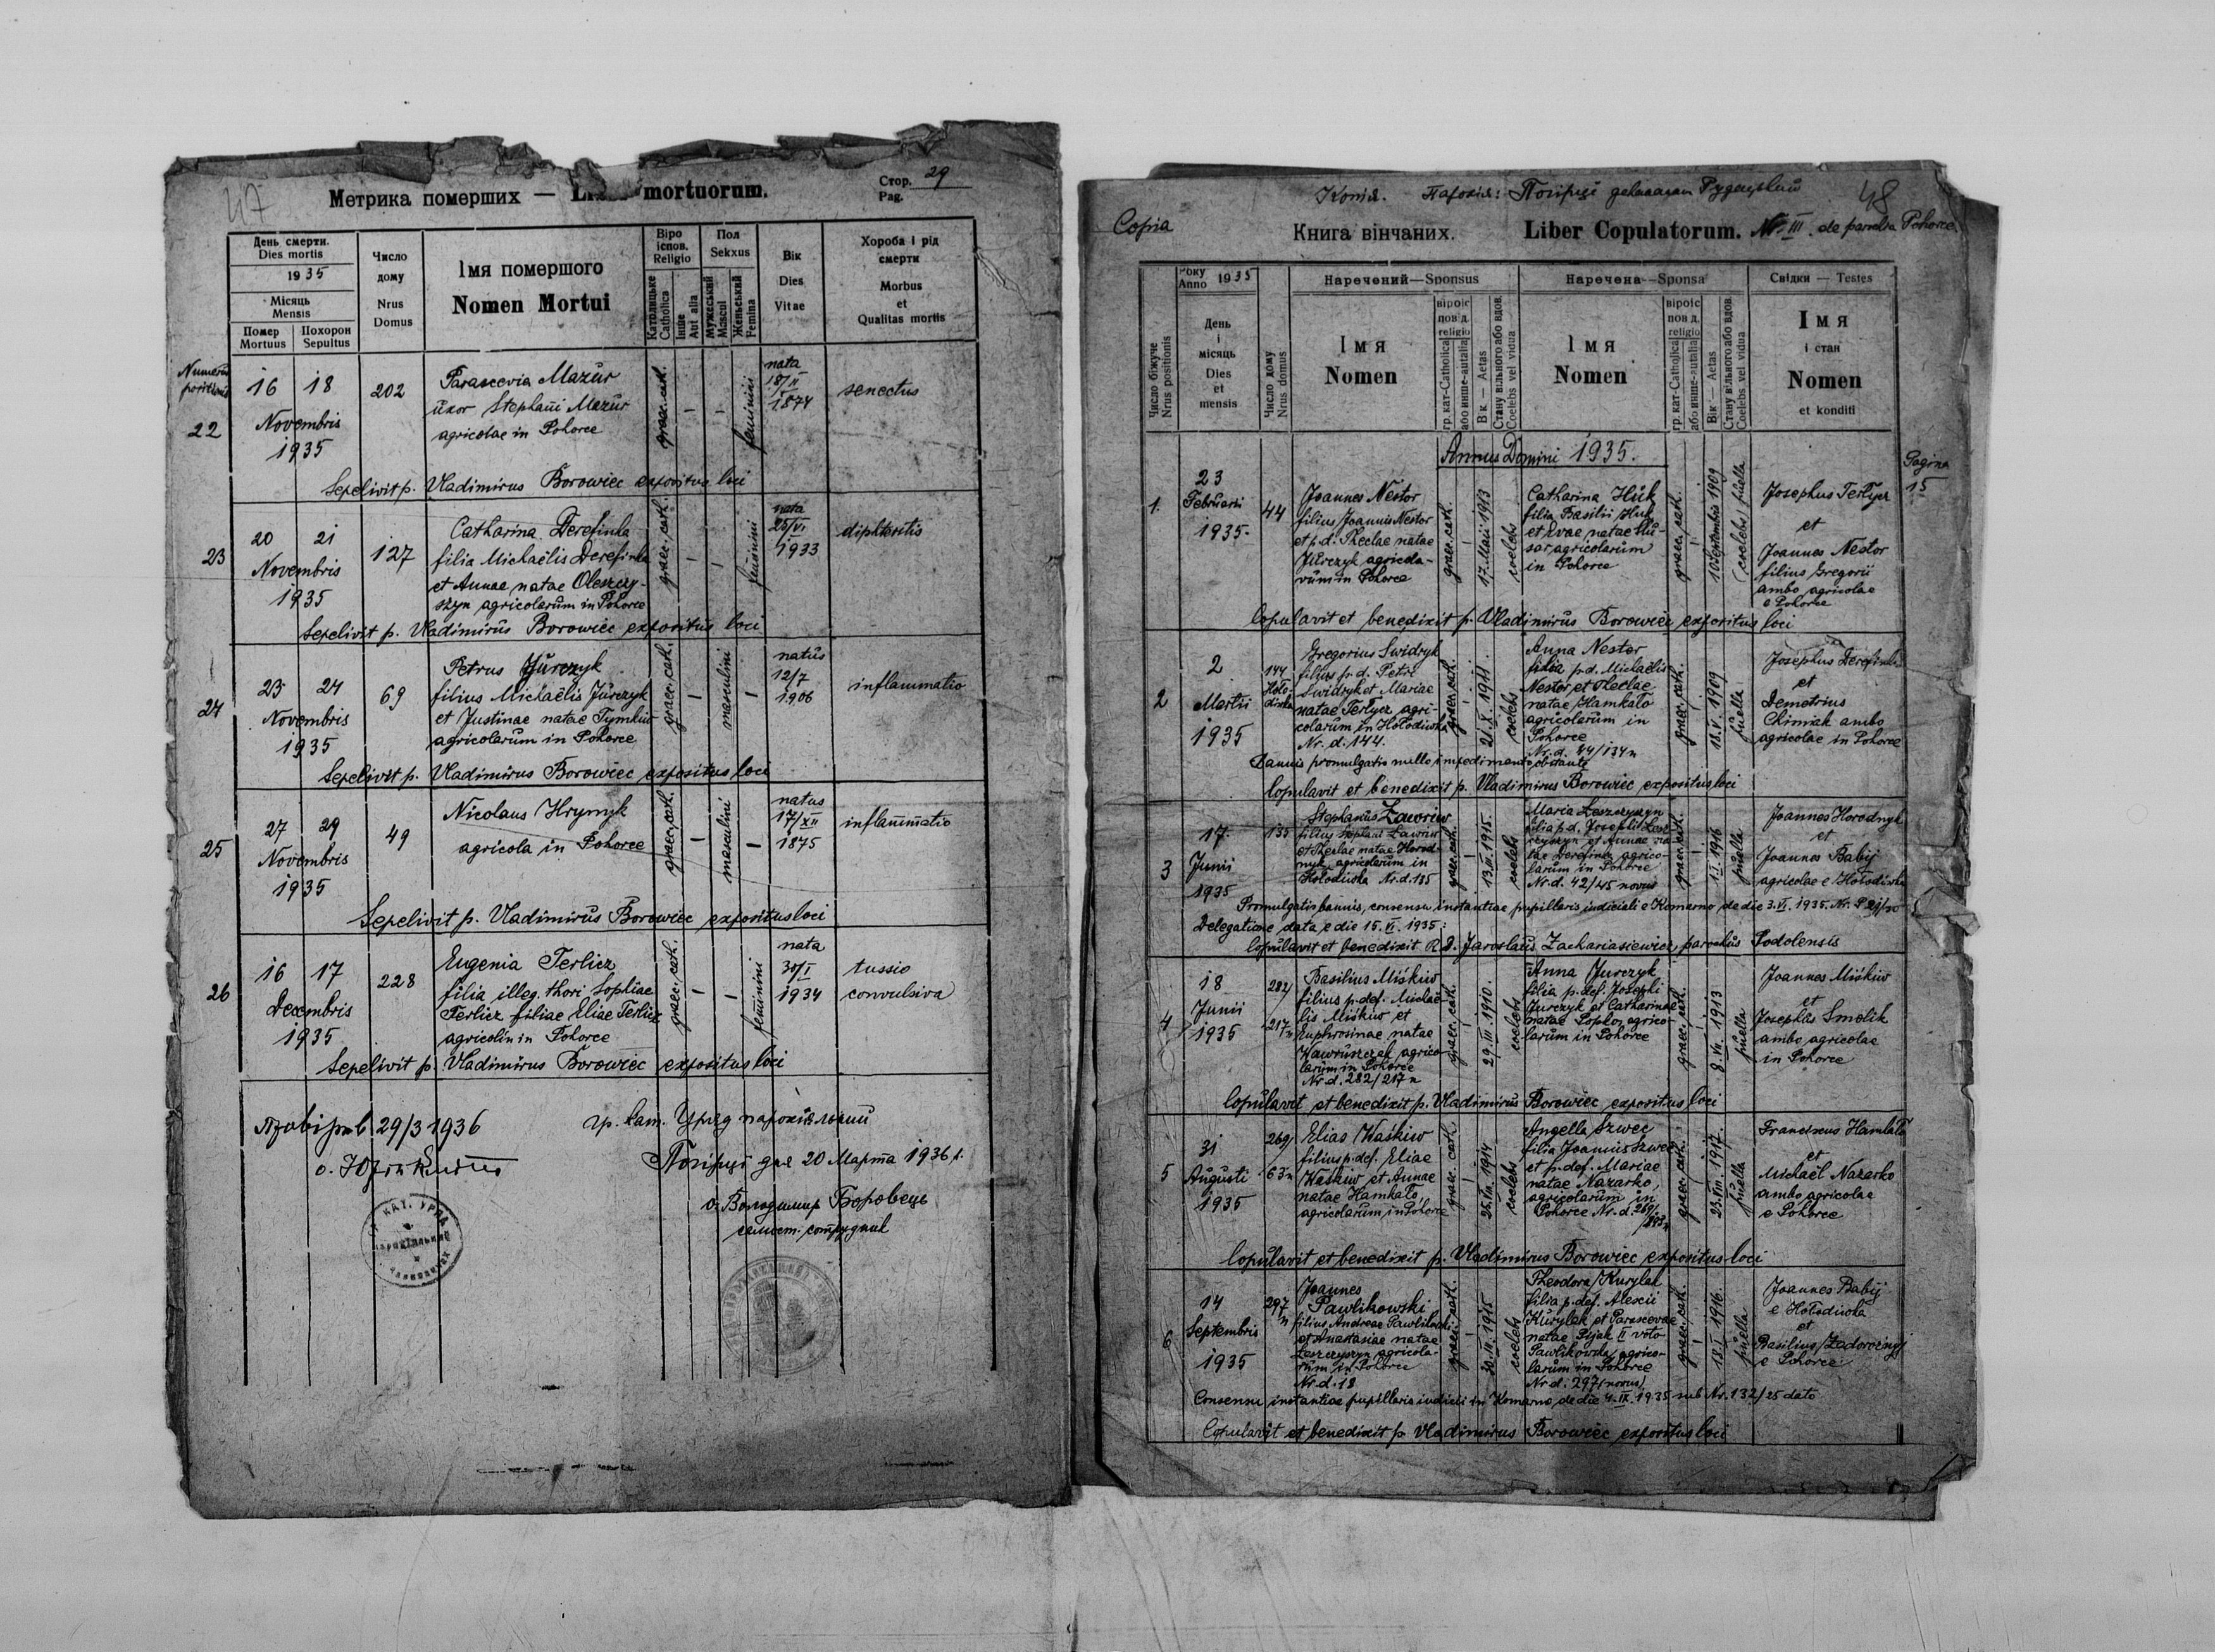 47
Метрика померших — mortuorum.
Стор. 29
Pag.
День смерти.
Dies mortis
1935
Місяць
Mensis
Помер
Mortuus
Похорон
Sepultus
Число
дому
Nrus
Domus
Імя помершого
Nomen Mortui
Віро
існов.
Religio
Католицьке
Catholica
Інше
Aut alia
Пол
Sekxus
Мужеський
Mascul
Женьський
Femina
Вік
Dies
Vitae
Хороба і рід
смерти
Morbus
et
Qualitas mortis
Numerus
positionis
22
16 18
Novembris
1935
202
Parascevia Mazur
uxor Stephani Mazur
agricolae in Pohorce
graec. cath.
feminini
nata
18/II
1874
senectus
Sepelivit p. Vladimirus Borowiec expositus loci
23
20 21
Novembris
1935
127
Catharina Derefinka
filia Michaëlis Derefinka
et Annae natae Oleszczy-
szyn agricolarum in Pohorce
graec. cath.
feminini
nata
25/VI
1933
diphteritis
Sepelivit p. Vladimirus Borowiec expositus loci
24
23 24
Novembris
1935
69
Petrus Jurczyk
filius Michaëlis Jurczyk
et Justinae natae Tymkiw
agricolarum in Pohorce
graec. cath.
masculini
natus
12/7
1906
inflammatio
Sepelivit p. Vladimirus Borowiec expositus loci
25
27 29
Novembris
1935
49
Nicolaus Hrymyk
agricola in Pohorce
graec. cath.
masculini
natus
17/XII
1875
inflammatio
Sepelivit p. Vladimirus Borowiec expositus loci
26
16 17
Decembris
1935
228
Eugenia Terlicz
filia illeg. thori Sophiae
Terlicz filiae Eliae Terlicz
agricolin in Pohorce
graec. cath.
feminini
nata
30/I
1934
tussio
convulsiva
Sepelivit p. Vladimirus Borowiec expositus loci
29/3 1936
о.
гр. кат. Уряд парохіяльний
дня 20 Марта 1936 р.
о. Володимир Боровець
сотрудник
48
Копія. Парохія: Погірці
Copia
Книга вінчаних. Liber Copulatorum. Nr. III. de parochia Pohorce
Число біжуче
Nrus positionis
Року
Anno 1935
День
і
місяць
Dies
et
mensis
Число дому
Nrus domus
Наречений—Sponsus
Імя
Nomen
віроіс
пов д.
religio
гр. кат-Catholica
або инше-autalia
Вік — Aetas
Стану вільного або вдов.
Coelebs vel vidua
Наречена—Sponsa
Імя
Nomen
віроіс
пов д.
religio
гр. кат-Catholica
або инше-autalia
Вік — Aetas
Стану вільного або вдов
Coelebs vel vidua
Свідки — Testes
Імя
і стан
Nomen
et konditi
Annus Domini 1935.
Pagina
15
1.
23
Februarii
1935.
44
Joannes Nestor
filius Joannis Nestor
et p. d. Theclae natae
Jurczyk agricola-
rum in Pohorce
graec. cath.
17. Maii 1913
coelebs
Catharina Huk
filia Basilii Huk
et Evae natae Hu-
sar, agricolarum
in Pohorce
graec. cath.
10 Septembris 1909
(coelebs) puella
Josephus Terlycz
et
Joannes Nestor
filius Gregorii
ambo agricolae
e Pohorce
Copulavit et benedixit p. Vladimirus Borowiec expositus loci
2
2
Martii
1935
144
Hoło-
diwka
Gregorius Swidryk
filius p. d. Petri
Swidryk et Mariae
natae Terlycz agri-
colarum in Hołodiwka
Nr. d. 144.
graec. cath.
21. X. 1911
coelebs
Anna Nestor
filia p. d. Michaëlis
Nestor et Theclae
natae Hamkało
agricolarum in
Pohorce
Nr. d. 44/134 n
graec. cath.
18. V. 1909
puella
Josephus Derefinka
et
Demetrius
Chimiak ambo
agricolae in Pohorce
Bannis promulgatis nullo impedimento obstante
Copulavit et benedixit p. Vladimirus Borowiec expositus loci
3
17.
Junii
1935
135
Stephanus Ławriw
filius Stephani Ławriw
et Theclae natae Horod-
nyk, agricolarum in
Hołodiwka Nr. d. 135
graec. cath.
13. III. 1915.
coelebs
Maria Leszczyszyn
filia p. d. Josephi Lesz-
czyszyn et Annae na-
tae Derefinka agrico-
larum in Pohorce
Nr. d. 42/45 novus
graec. cath.
1916
puella
Joannes Horodnyk
et
Joannes Babij
agricolae e Hołodiwka
Promulgatis bannis, consensu instantiae pupillaris iudiciali e Komarno de die 3. VI. 1935. Nr.
Delegatione data e die 15. VI. 1935:
Copulavit et benedixit R. D. Jaroslaus Zachariasiewicz, parochus Podolensis
4
18
Junii
1935
282/
217 n
Basilius Miśkiw
filius p. def. Michaë-
lis Miśkiw et
Euphrosinae natae
Wawruszczak agrico-
larum in Pohorce
Nr d. 282/217 n
graec. cath.
29. III. 1910.
coelebs
Anna Jurczyk
filia p. def. Josephi
Jurczyk et Catharinae
natae Popko, agrico-
larum in Pohorce
graec. cath.
8. VII. 1913
puella
Joannes Miśkiw
et
Josephus Smolik
ambo agricolae
in Pohorce
Copulavit et benedixit p. Vladimirus Borowiec expositus loci
5
31
Augusti
1935
269/
63 n
Elias Waśkiw
filius p. def. Eliae
Waśkiw et Annae
natae Hamkało,
agricolarum, in Pohorce
graec. cath.
1914
coelebs
Angella Szwec
filia Joannis Szwec
et p. def. Mariae
natae Nazarko,
agricolarum in
Pohorce Nr. d. 269/
graec. cath.
23. VIII. 1917.
puella
Franciscus Hamkało
et
Michaël Nazarko
ambo agricolae
e Pohorce
Copulavit et benedixit p. Vladimirus Borowiec expositus loci
6
14
Septembris
1935
297
n
Joannes
Pawlikowski
filius Andreae Pawlikowski
et Anastasiae natae
Leszczyszyn agricola-
rum in Pohorce
Nr d. 18
graec. cath.
1915
coelebs
Theodora Kurylak
filia p. def. Alexii
Kurylak et Parascevae
natae Pijak II voto
Pawlikowska, agrico-
larum in Pohorce
Nr d. 297 (novus)
graec. cath.
18. I. 1916.
puella
Joannes Babij
e Hołodiwka
et
Basilius Zadorożnyj
e Pohorce
Consensu instantiae pupillaris iudicii in Komarno de die 4. IX. 1935 sub Nr. 132/25 dato
Copulavit et benedixit p. Vladimirus Borowiec expositus loci